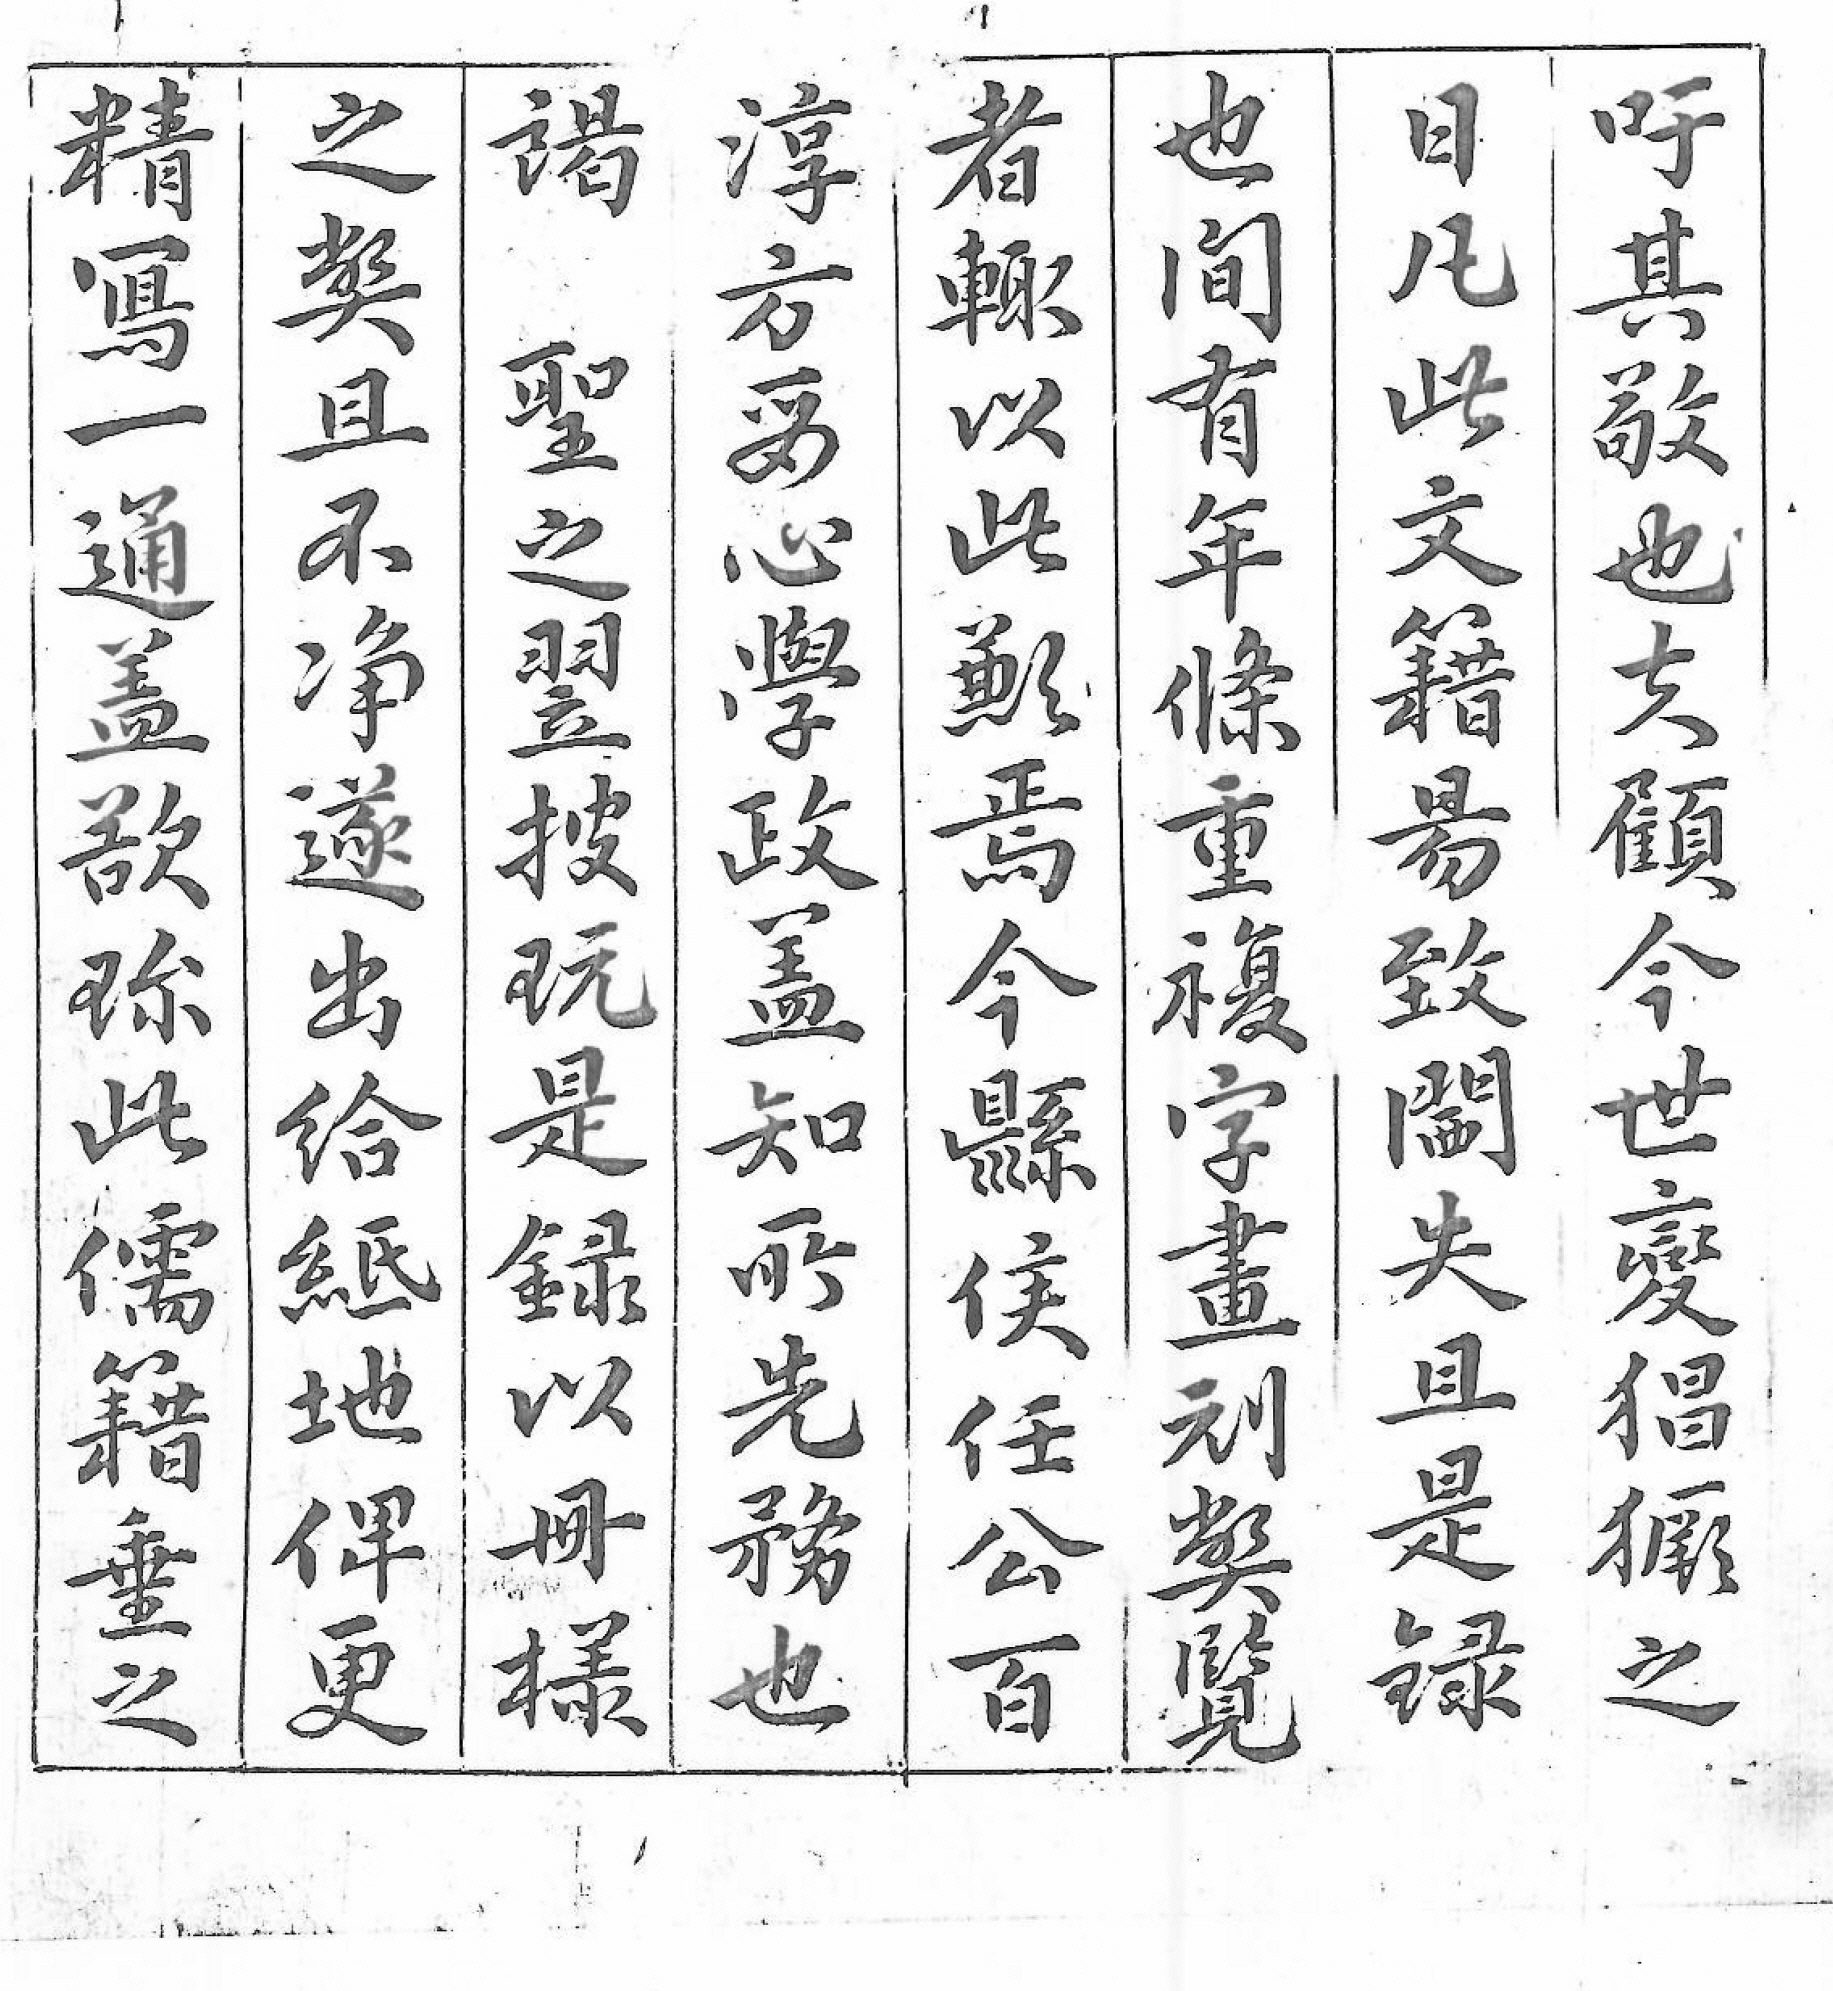 吁其敬也夫顧今世變猖獗之
日凡此文籍易致闕失且是録
也間有年條重複字畫刓獘覽
者輙以此歎焉今縣侯任公百
淳方妥心學政盖知所先務也
謁　聖之翌披玩是録以冊樣
之獘且不净遂出給紙地俾更
精寫一通盖欲珎此儒籍垂之